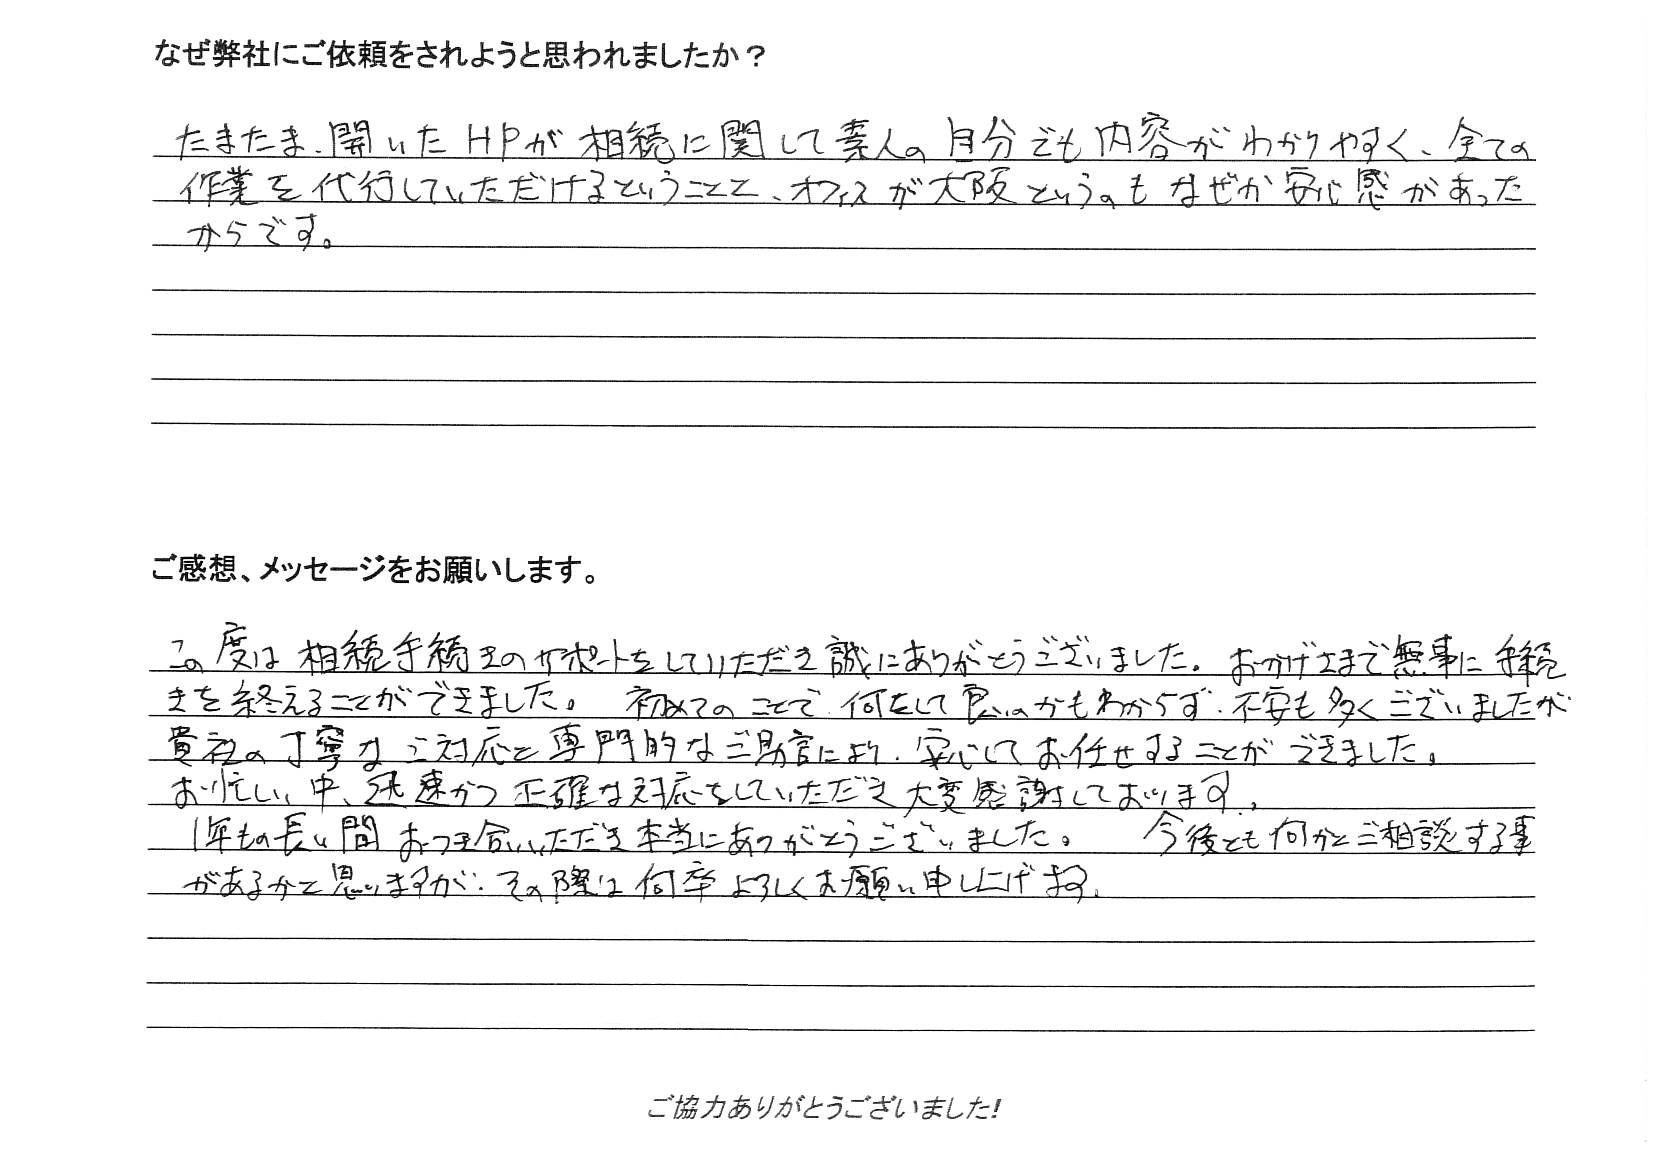 なぜ弊社にご依頼をされようと思われましたか？
たまたま、開いたHPが相続に関して素人の自分でも内容がわかりやすく、全ての
作業を代行していただけるということと、オフィスが大阪というのもなぜか安心感があった
からです。
ご感想、メッセージをお願いします。
この度は相続手続きのサポートをしていただき誠にありがとうございました。おかげさまで無事に手続
きを終えることができました。初めてのことで、何をして良いのかもわからず、不安も多くございましたが
貴社の丁寧なご対応と専門的なご助言により、安心してお任せすることができました。
お忙しい中、迅速かつ正確な対応をしていただき大変感謝しております。
1年もの長い間おつき合いいただき本当にありがとうございました。 今後とも何かとご相談する事
があるかと思いますが、その際は何卒よろしくお願い申し上げます。
ご協力ありがとうございました!